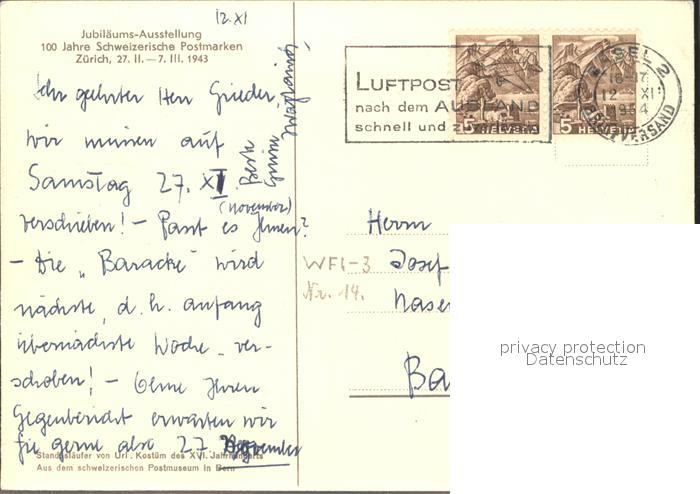 12.XI
Jubiläums-Ausstellung
100 Jahre Schweizerische Postmarken
Zürich, 27. II.—7. III. 1943
Sehr geehrter Herr Grieder,
wir müssen auf
Samstag 27. XI.
(November)
verschieben! - Passt es Ihnen?
- Die „Baracke" wird
nächste, d. h. anfang
übernächste Woche ver-
schoben! - Gerne Ihren
Gegenbericht erwarten wir
Sie gerne also 27. November
Beste
Standesläufer von Uri. Kostüm des XVI. Jahrhunderts
Aus dem schweizerischen Postmuseum in Bern
LUFTPOST
nach dem AUSLAND
schnell und
5 HELVETIA
5 HELVETIA
BASEL 2
12. XI
1954
BRIEFVERSAND
Herrn
Josef
WF1-3
Nr. 14.
Nasen
Ba
privacy protection
Datenschutz